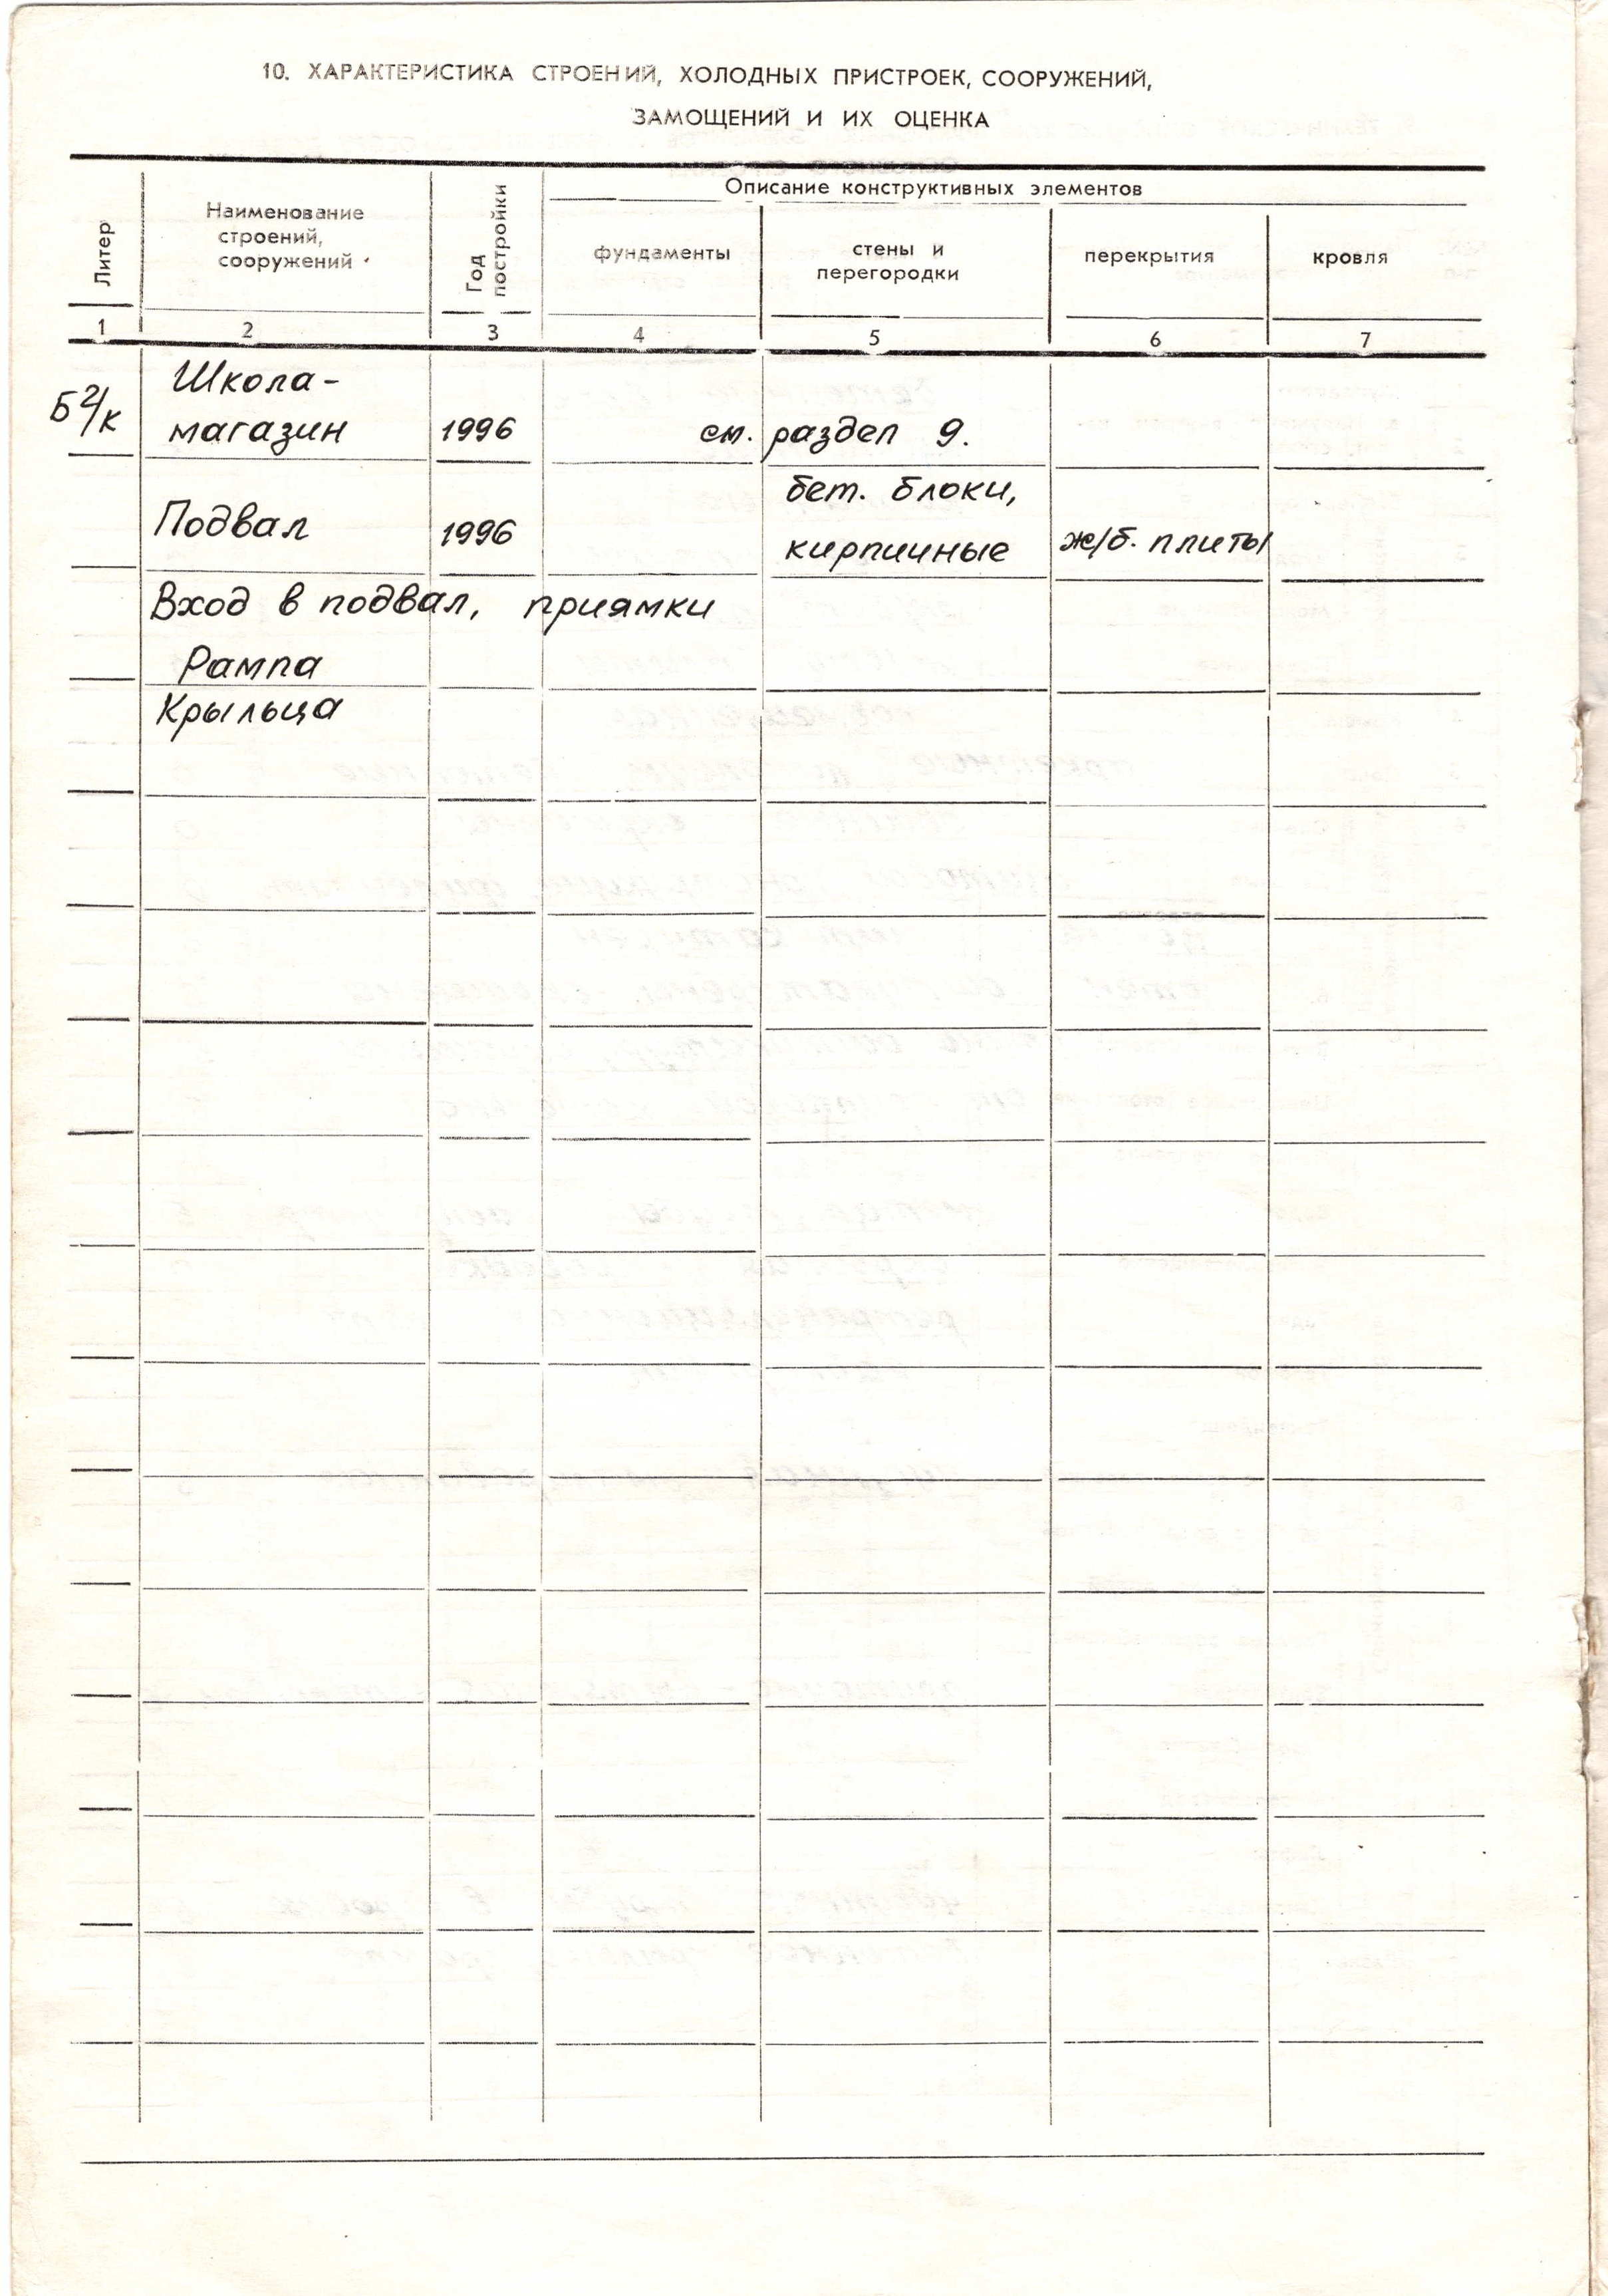 10. ХАРАКТЕРИСТИКА СТРОЕНИЙ, ХОЛОДНЫХ ПРИСТРОЕК, СООРУЖЕНИЙ,
ЗАМОЩЕНИЙ И ИХ ОЦЕНКА
Литер
Наименование
строений,
сооружений
Год
постройки
Описание конструктивных элементов
фундаменты
стены и
перегородки
перекрытия
кровля
1 2 3 4 5 6 7
Школа-
Б2/к магазин 1996 см. раздел 9.
бет. блоки,
Подвал 1996 кирпичные ж/б. плиты
Вход в подвал, приямки
Рампа
Крыльца